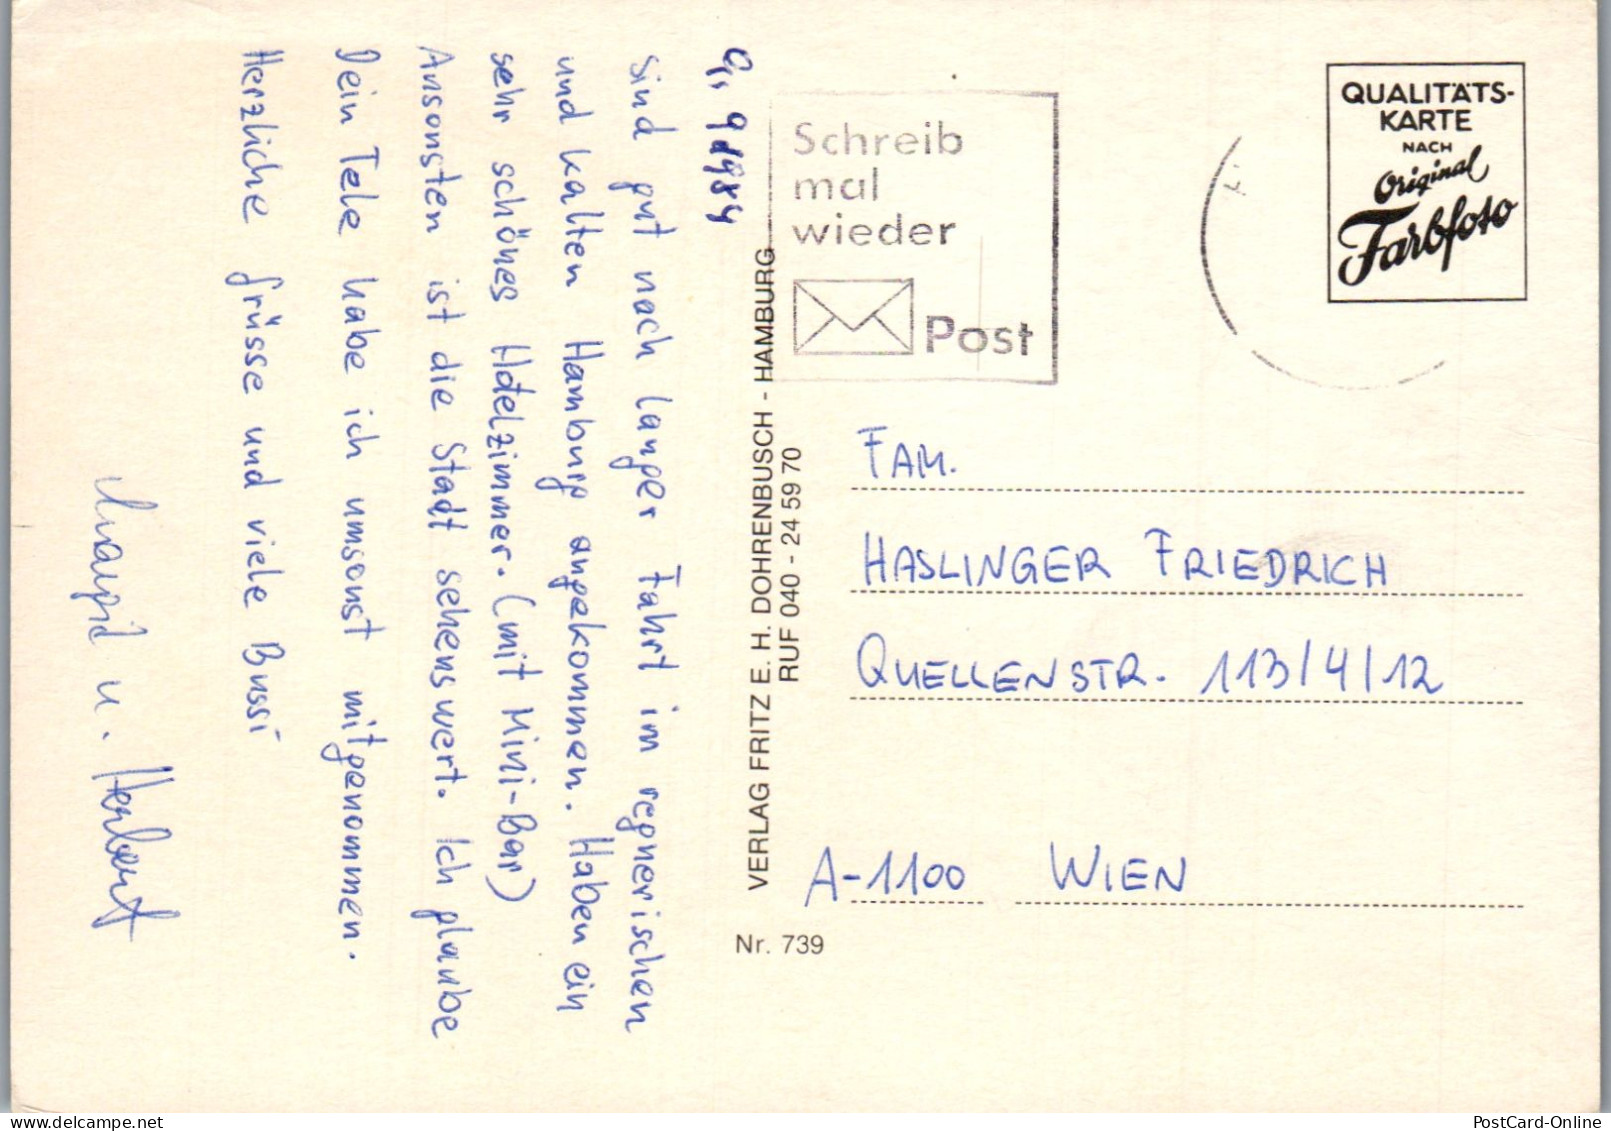 9. 9 1984
Sind gut nach langer Fahrt im regnerischen
und kalten Hamburg angekommen. Haben ein
sehr schönes Hotelzimmer. (mit Mini-Bar)
Ansonsten ist die Stadt sehenswert. Ich glaube
Dein Tele habe ich umsonst mitgenommen.
Herzliche Grüsse und viele Bussi
u. Herbert
VERLAG FRITZ E. H. DOHRENBUSCH - HAMBURG
RUF 040 - 24 59 70
Nr. 739
Schreib
mal
wieder
Post
QUALITÄTS-
KARTE
NACH
Original
Farbfoto
FAM.
HASLINGER FRIEDRICH
QUELLENSTR. 113/4/12
A-1100 WIEN
PostCard-Online